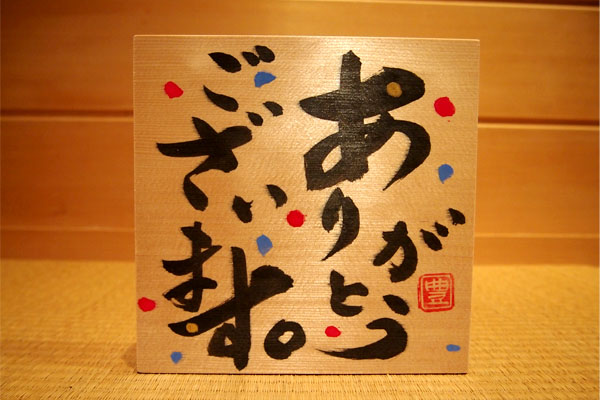 ありがとう
ございます。
豊